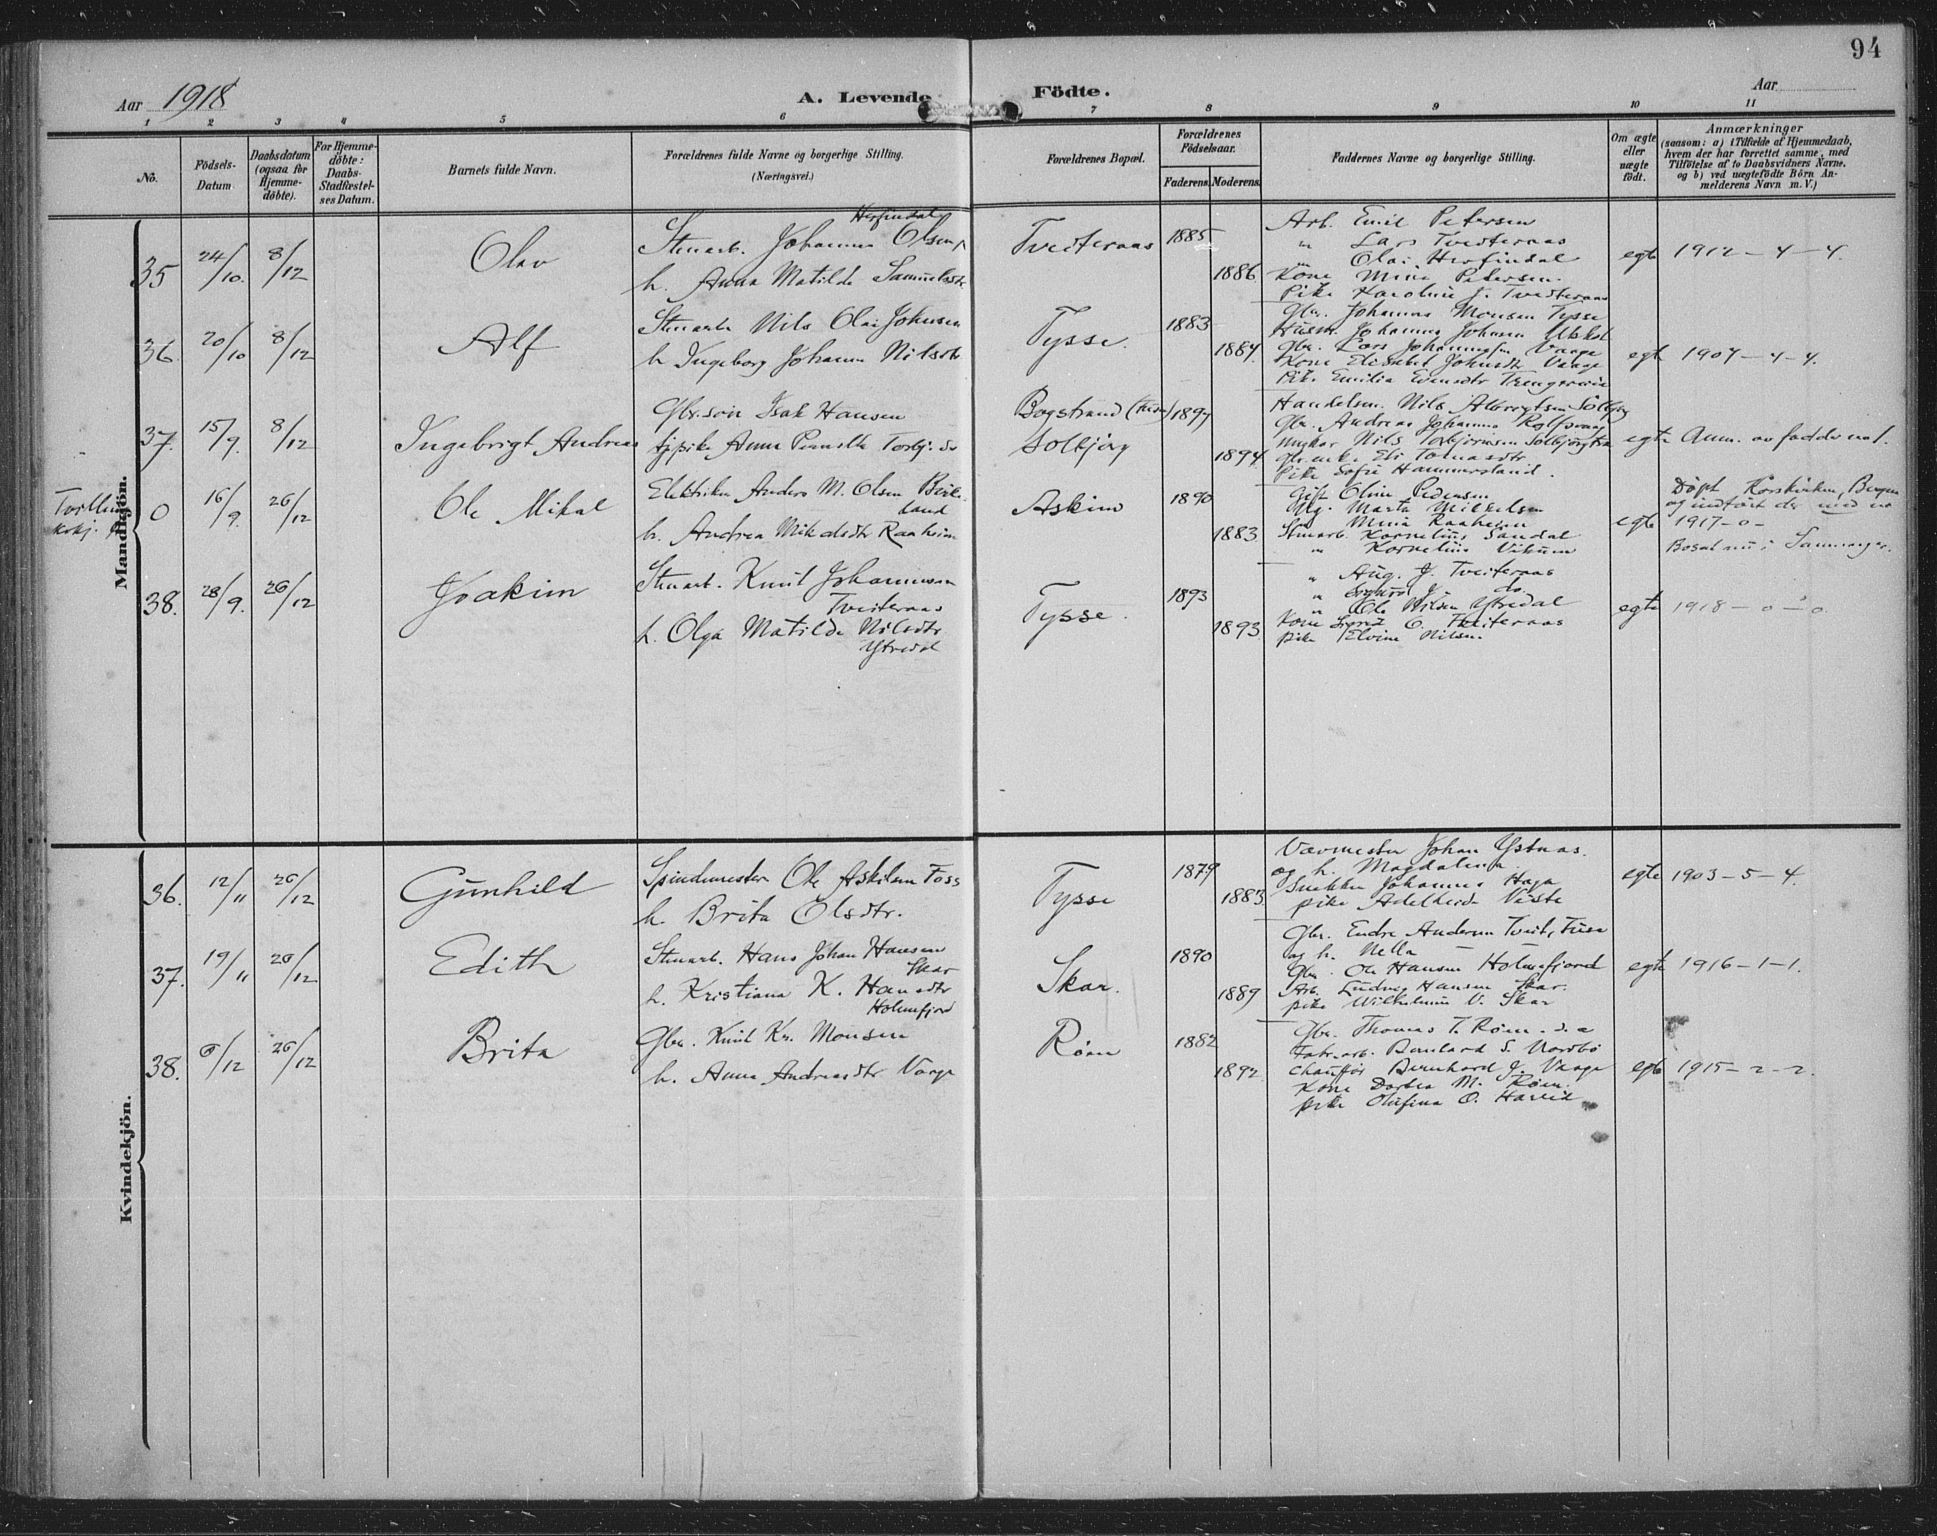 94
Aar 1918
A. Levende Födte.
Aar
1 2 3 4 5 6 7 8 9 10 11
No.
Födsels-Datum.
Daabsdatum (ogsaa for Hjemme-döbte).
For Hjemme-döbte: Daabs-Stadfæstel-ses Datum.
Barnets fulde Navn.
Forældrenes fulde Navne og borgerlige Stilling. (Næringsvei.)
Forældrenes Bopæl.
Forældrenes Födselsaar.
Faderens. Moderens.
Faddernes Navne og borgerlige Stilling.
Om ægte eller uægte födt.
Anmærkninger
(saasom: a) i Tilfælde af Hjemmedaab,
hvem der har forrettet samme, med
Tilföielse af to Daabsvidners Navne,
og b) ved uægtefödte Börn An-
melderens Navn m. V.)
Mandkjön.
35 24/10. 8/12 Olav
Herfindal
Stenarb. Johannes Olsen
h. Anna Matilde Samuelsdtr
Tveiteraas 1885 1886
Arb. Emil Petersen
" Lars Tveiteraas
" Olai Herfindal
Kone Mina Petersen.
Pike Karoline J. Tveiteraas
egte 1912-4-4.
36. 20/10 8/12 Alf
Stenarb. Nils Olai Johnsen
h Ingeborg Johanna Nilsdtr.
Tysse. 1883 1884
Gbr. Johannes Monsen Tysse
Husm. Johannes Johnsen
Gbr. Lars Johannessen Vaage
Kone Elisabet Johnsdtr Vaage
Pike Emilia Evensdtr Trengereid
egte 1907-4-4.
37. 15/9. 8/12 Ingebrigt Andreas
Gbr.søn Isak Hansen
pike Anna Pernille Torbj.
Bogstrand 1897
Solbjörg 1894
Handelsm. Nils
Gbr. Andreas Johannes
Ungkar Nils Torbjørnsen
Eli Tomasdtr
Pike Sofie Hammersland.
egte Anm. av fadder no 1.
Tvilling
0 16/9. 26/12 Ole Mikal
Elektriker Anders M. Olsen Birke-
land
h. Andrea Mikalsdtr Raaheim
Askim 1890 1883
Gift Oline Pedersen
Ug. Marta Mikkelsen
" Mina Raaheim
Stenarb. Kornelius Sandal
" Kornelius Vikum
egte
Døpt Korskirken, Bergen
og indført der med no
1917-0-
Bosat nu i Samnanger.
38. 28/9. 26/12 Joakim
Stenarb. Knut Johannessen
Tveiteraas
h. Olga Matilde Nilsdtr
Ytredal
Tysse. 1893 1893
" Aug. J. Tveiteraas
" Sigurd J. do.
" Ole Nilsen Ytredal
Kone Sigrid O. Tveiteraas
pike Elvine Nilsen.
egte 1918-0-0.
Kvindekjön.
36. 12/11 26/12 Gunhild
Spindemester Ole Askilsen Foss
h. Brita Olsdtr.
Tysse 1879 1883
Vævmester Johan Ystnas.
og h. Magdalena.
Snikker Johannes Haga
pike Adelheid
egte 1903-5-4.
37. 19/11 26/12 Edith
Stenarb. Hans Johan Hansen
Skar
h. Kristiana K. Hansdtr
Holmefjord
Skar. 1890 1889
Gbr. Endre Andersen Tveit, Fusa
og h. Nella
Gbr. Ole Hansen Holmefjord
Arb. Ludvig Hansen Skar.
pike Wilhelmine V. Skar
egte 1916-1-1.
38. 6/12 26/12 Brita
Gbr. Knut Kr. Monsen
h. Anna Andreasdtr Vaage
Røen 1882 1892
Gbr. Thomas T. Røen. s.a
Fabr.arb. S. Nordbø
Chauffør Bernhard J. Vaage
Kone Dortea M. Røen.
pike Olufina O. Harvid
egte 1915-2-2.